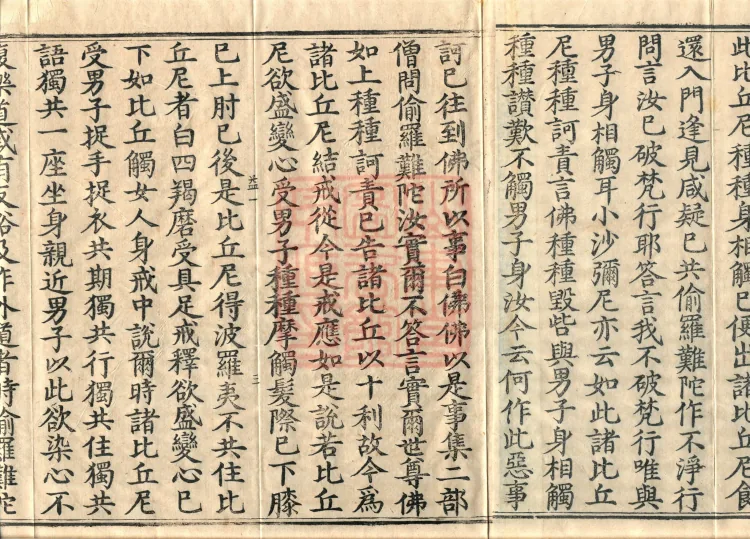 此比丘尼種種身相觸已便出諸比丘尼食
還入門逢見咸疑已共偷羅難陀作不淨行
問言汝已破梵行耶答言我不破梵行唯與
男子身相觸耳小沙彌尼亦云如此諸比丘
尼種種訶責言佛種種毀呰與男子身相觸
種種讃歎不觸男子身汝今云何作此惡事
訶已往到佛所以事白佛佛以是事集二部
僧問偷羅難陀汝實爾不答言實爾世尊佛
如上種種訶責已告諸比丘以十利故今爲
諸比丘尼結戒從今是戒應如是說若比丘
尼欲盛變心受男子種種摩觸髮際已下膝
益一 三
已上肘已後是比丘尼得波羅夷不共住比
丘尼者白四羯磨受具足戒釋欲盛變心已
下如比丘觸女人身戒中說爾時諸比丘尼
受男子捉手捉衣共期獨共行獨共住獨共
語獨共一座坐身親近男子以此欲染心不
復樂道或有反俗及作外道者時偷羅難陀